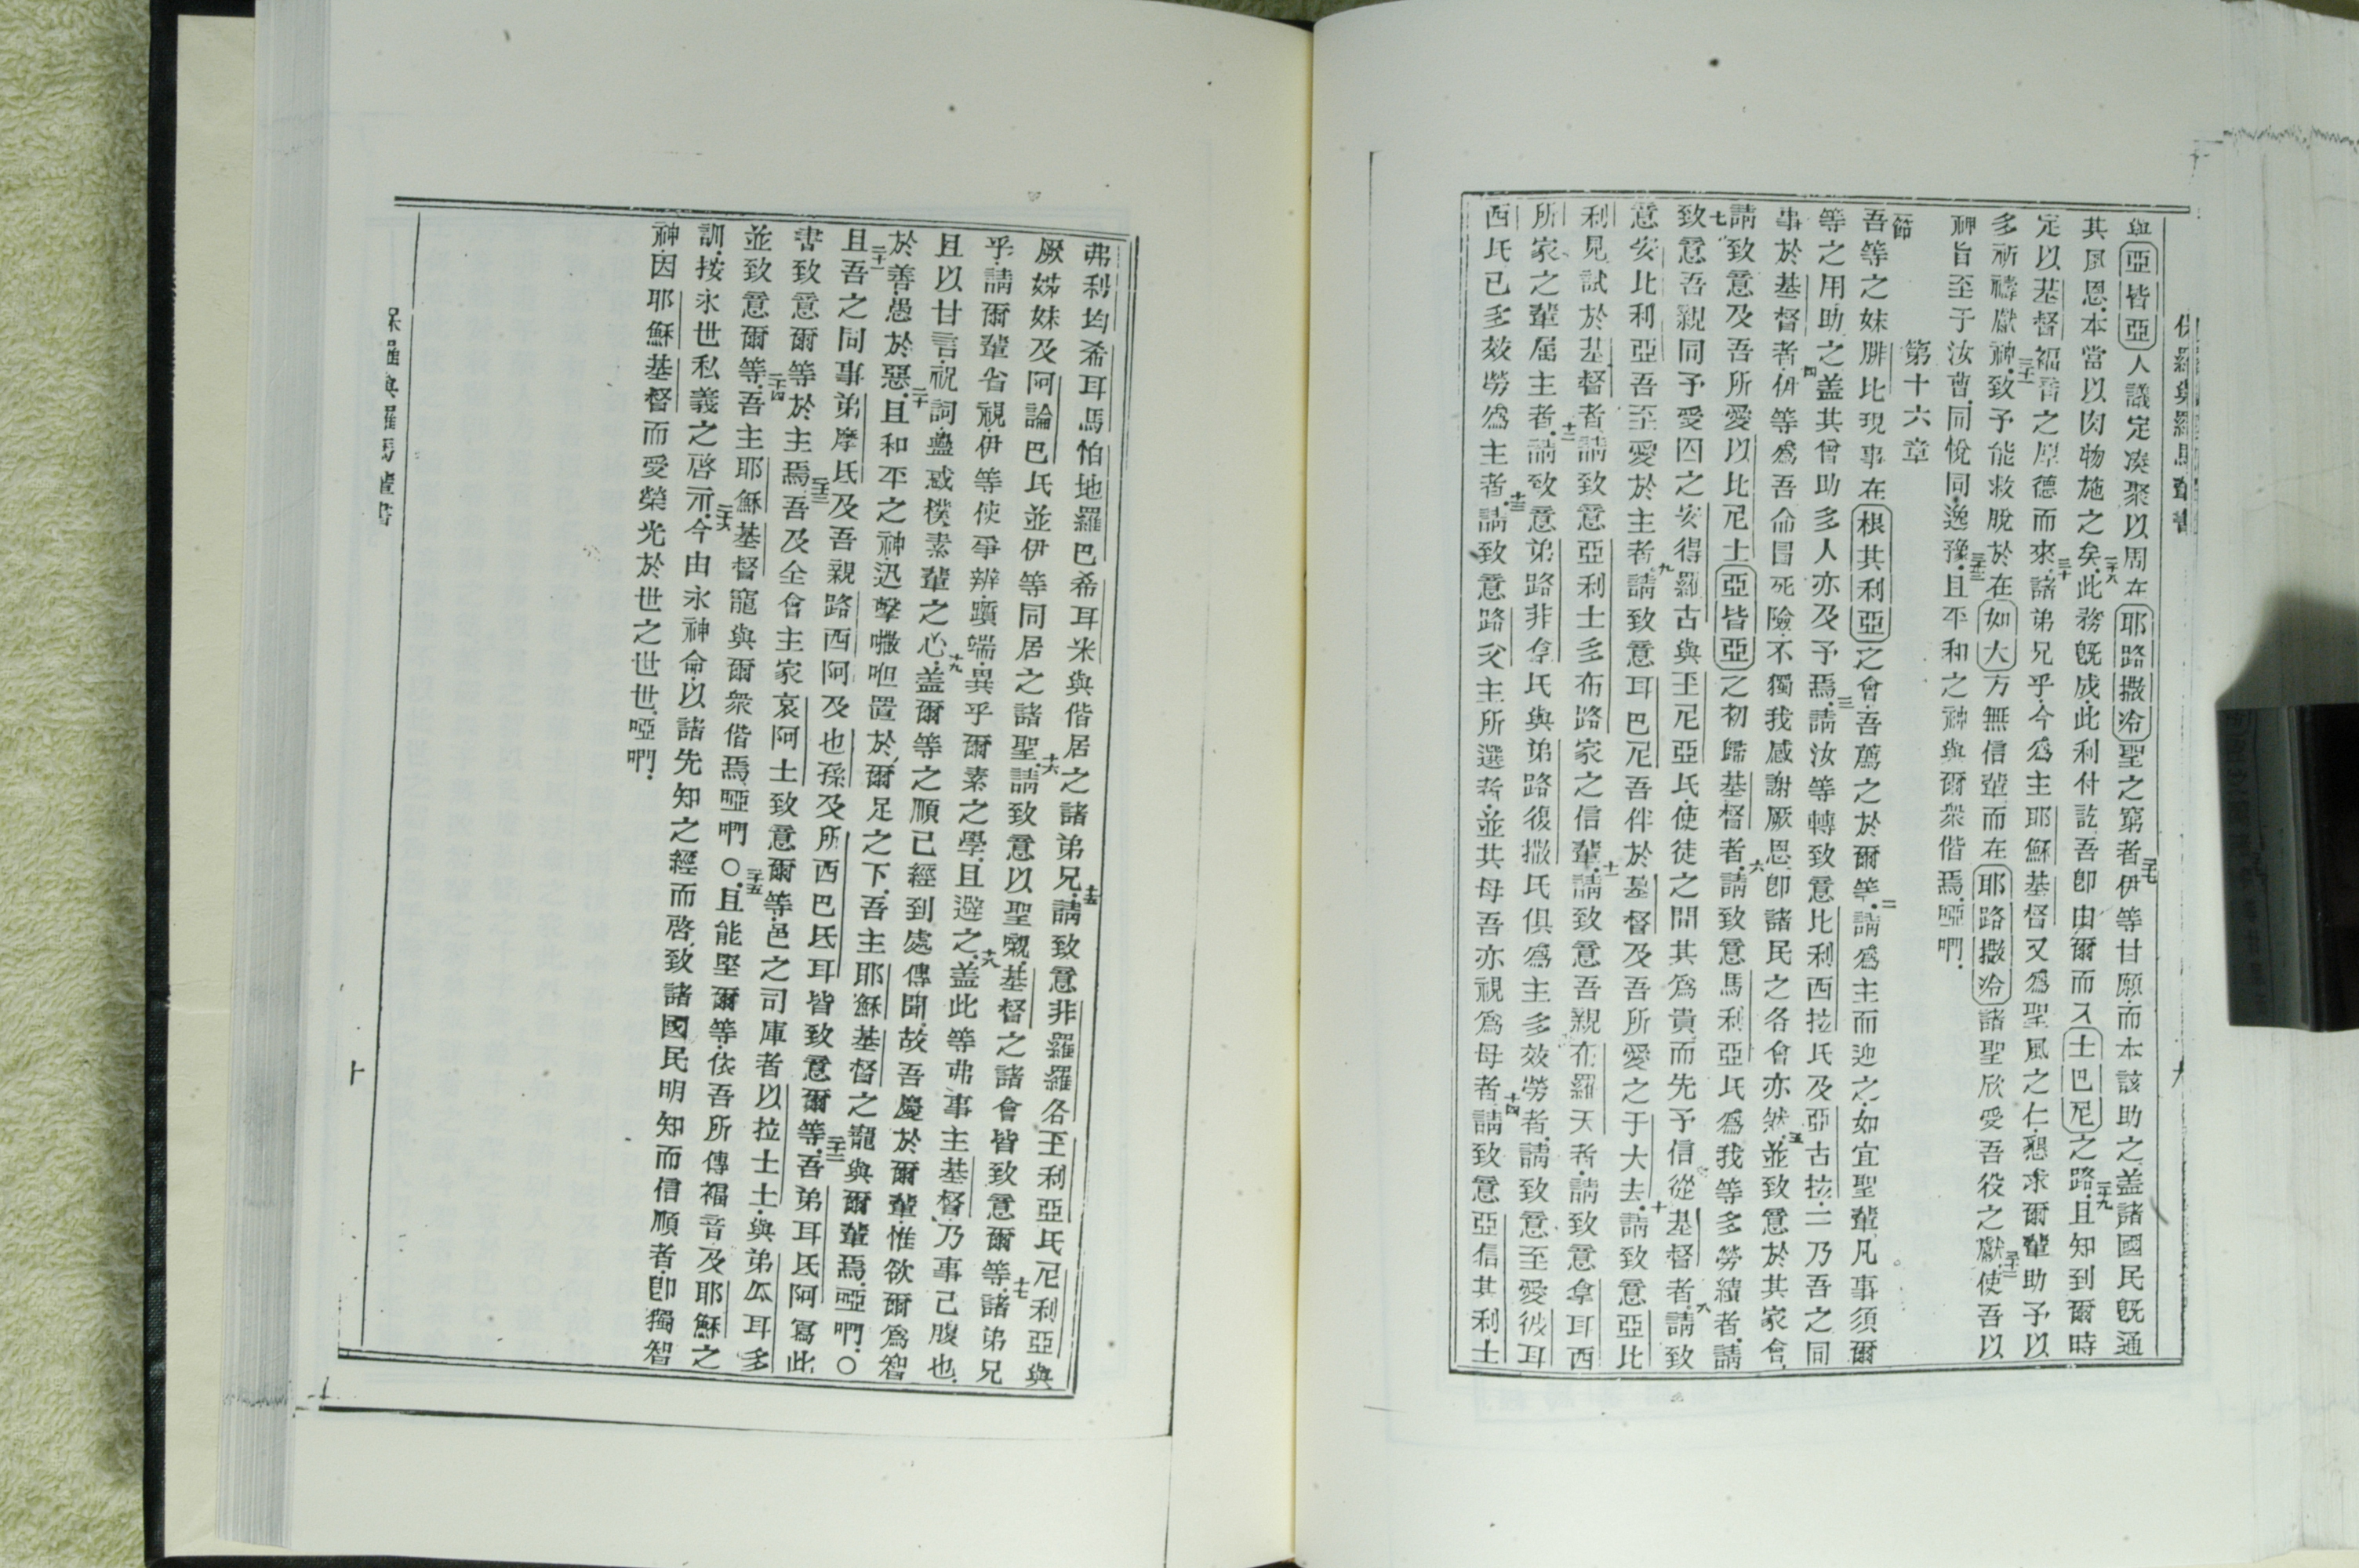 保羅與羅馬輩書
與亞皆亞人議定凑聚以周在耶路撒冷聖之窮者二七伊等甘願而本該助之盖諸國民既通
其風恩本當以肉物施之矣二十八此務既成此利付訖吾卽由爾而入士巴尼之路二十九且知到爾時
定以基督福音之厚德而來三十諸弟兄乎今爲主耶穌基督又爲聖風之仁懇求爾輩助予以
多祈禱獻神三十一致予能救脫於在如大方無信輩而在耶路撒冷諸聖欣愛吾役之獻三十二使吾以
神旨至于汝曹同悅同逸豫三十三且平和之神與爾衆偕焉啞們
第十六章
節
吾等之妹腓比現事在根其利亞之會吾薦之於爾等二請爲主而迎之如宜聖輩凡事須爾
等之用助之盖其曾助多人亦及予焉三請汝等轉致意比利西拉氏及亞古拉二乃吾之同
事於基督者四伊等爲吾命冒死險不獨我感謝厥恩卽諸民之各會亦然五並致意於其家會
請致意及吾所愛以比尼士亞皆亞之初歸基督者六請致意馬利亞氏爲我等多勞績者請
七致意吾親同予受囚之安得羅古與玉尼亞氏使徒之間其爲貴而先予信從基督者八請致
意安比利亞吾至愛於主者九請致意耳巴尼吾伴於基督及吾所愛之于大去十請致意亞比
利見試於基督者請致意亞利士多布路家之信輩十一請致意吾親布羅天者請致意拿耳西
所家之輩屬主者十二請致意弟路非拿氏與弟路復撒氏俱爲主多效勞者請致意至愛彼耳
西氏已多效勞爲主者十三請致意路父主所選者並其母吾亦視爲母者十四請致意亞信其利士
弗利均希耳馬怕地羅巴希耳米與偕居之諸弟兄十五請致意非羅羅各玉利亞氏尼利亞與
厥姊妹及阿論巴氏並伊等同居之諸聖十六請致意以聖嘴基督之諸會皆致意爾等十七諸弟兄
乎請爾輩省視伊等使爭辨躓端異乎爾素之學且避之十八盖此等弗事主基督乃事己腹也
且以甘言祝詞蠱惑樸素輩之心十九盖爾等之順已經到處傳聞故吾慶於爾輩惟欲爾爲智
於善愚於惡二十且和平之神迅擊㘔呾置於爾足之下吾主耶穌基督之寵與爾輩焉啞們○
二十一且吾之同事弟摩氏及吾親路西阿及也孫及所西巴氐耳皆致意爾等二十二吾弟耳氐阿寫此
書致意爾等於主焉二十三吾及全會主家哀阿士致意爾等邑之司庫者以拉士士與弟瓜耳多
並致意爾等二十四吾主耶穌基督寵與爾衆偕焉啞們○二十五且能堅爾等依吾所傳福音及耶穌之
訓按永世私義之啓示二十六今由永神命以諸先知之經而啓致諸國民明知而信順者卽獨智
神因耶穌基督而受榮光於世之世世啞們
保羅與羅馬輩書
十